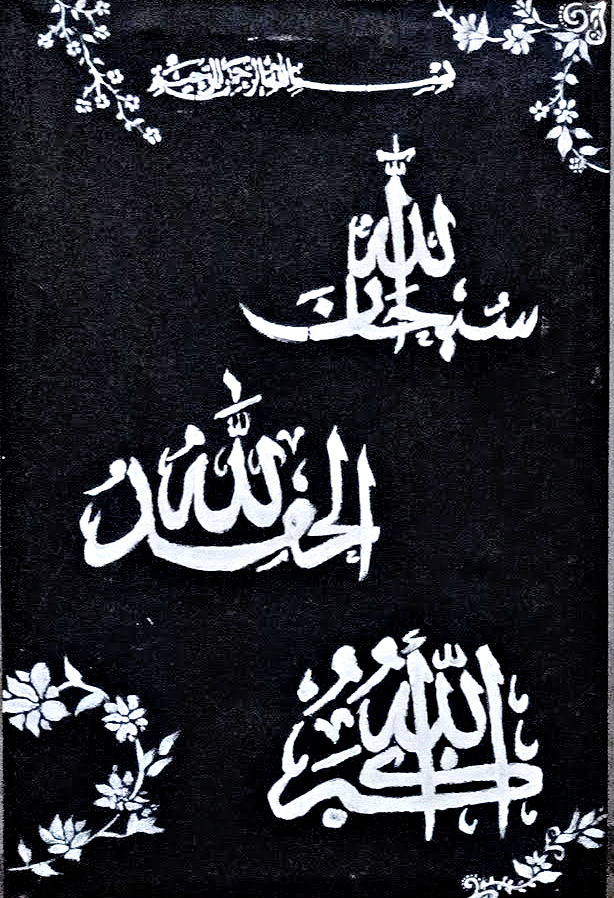 بسم الله الرحمن الرحيم
سبحان الله
الحمد لله
الله أكبر